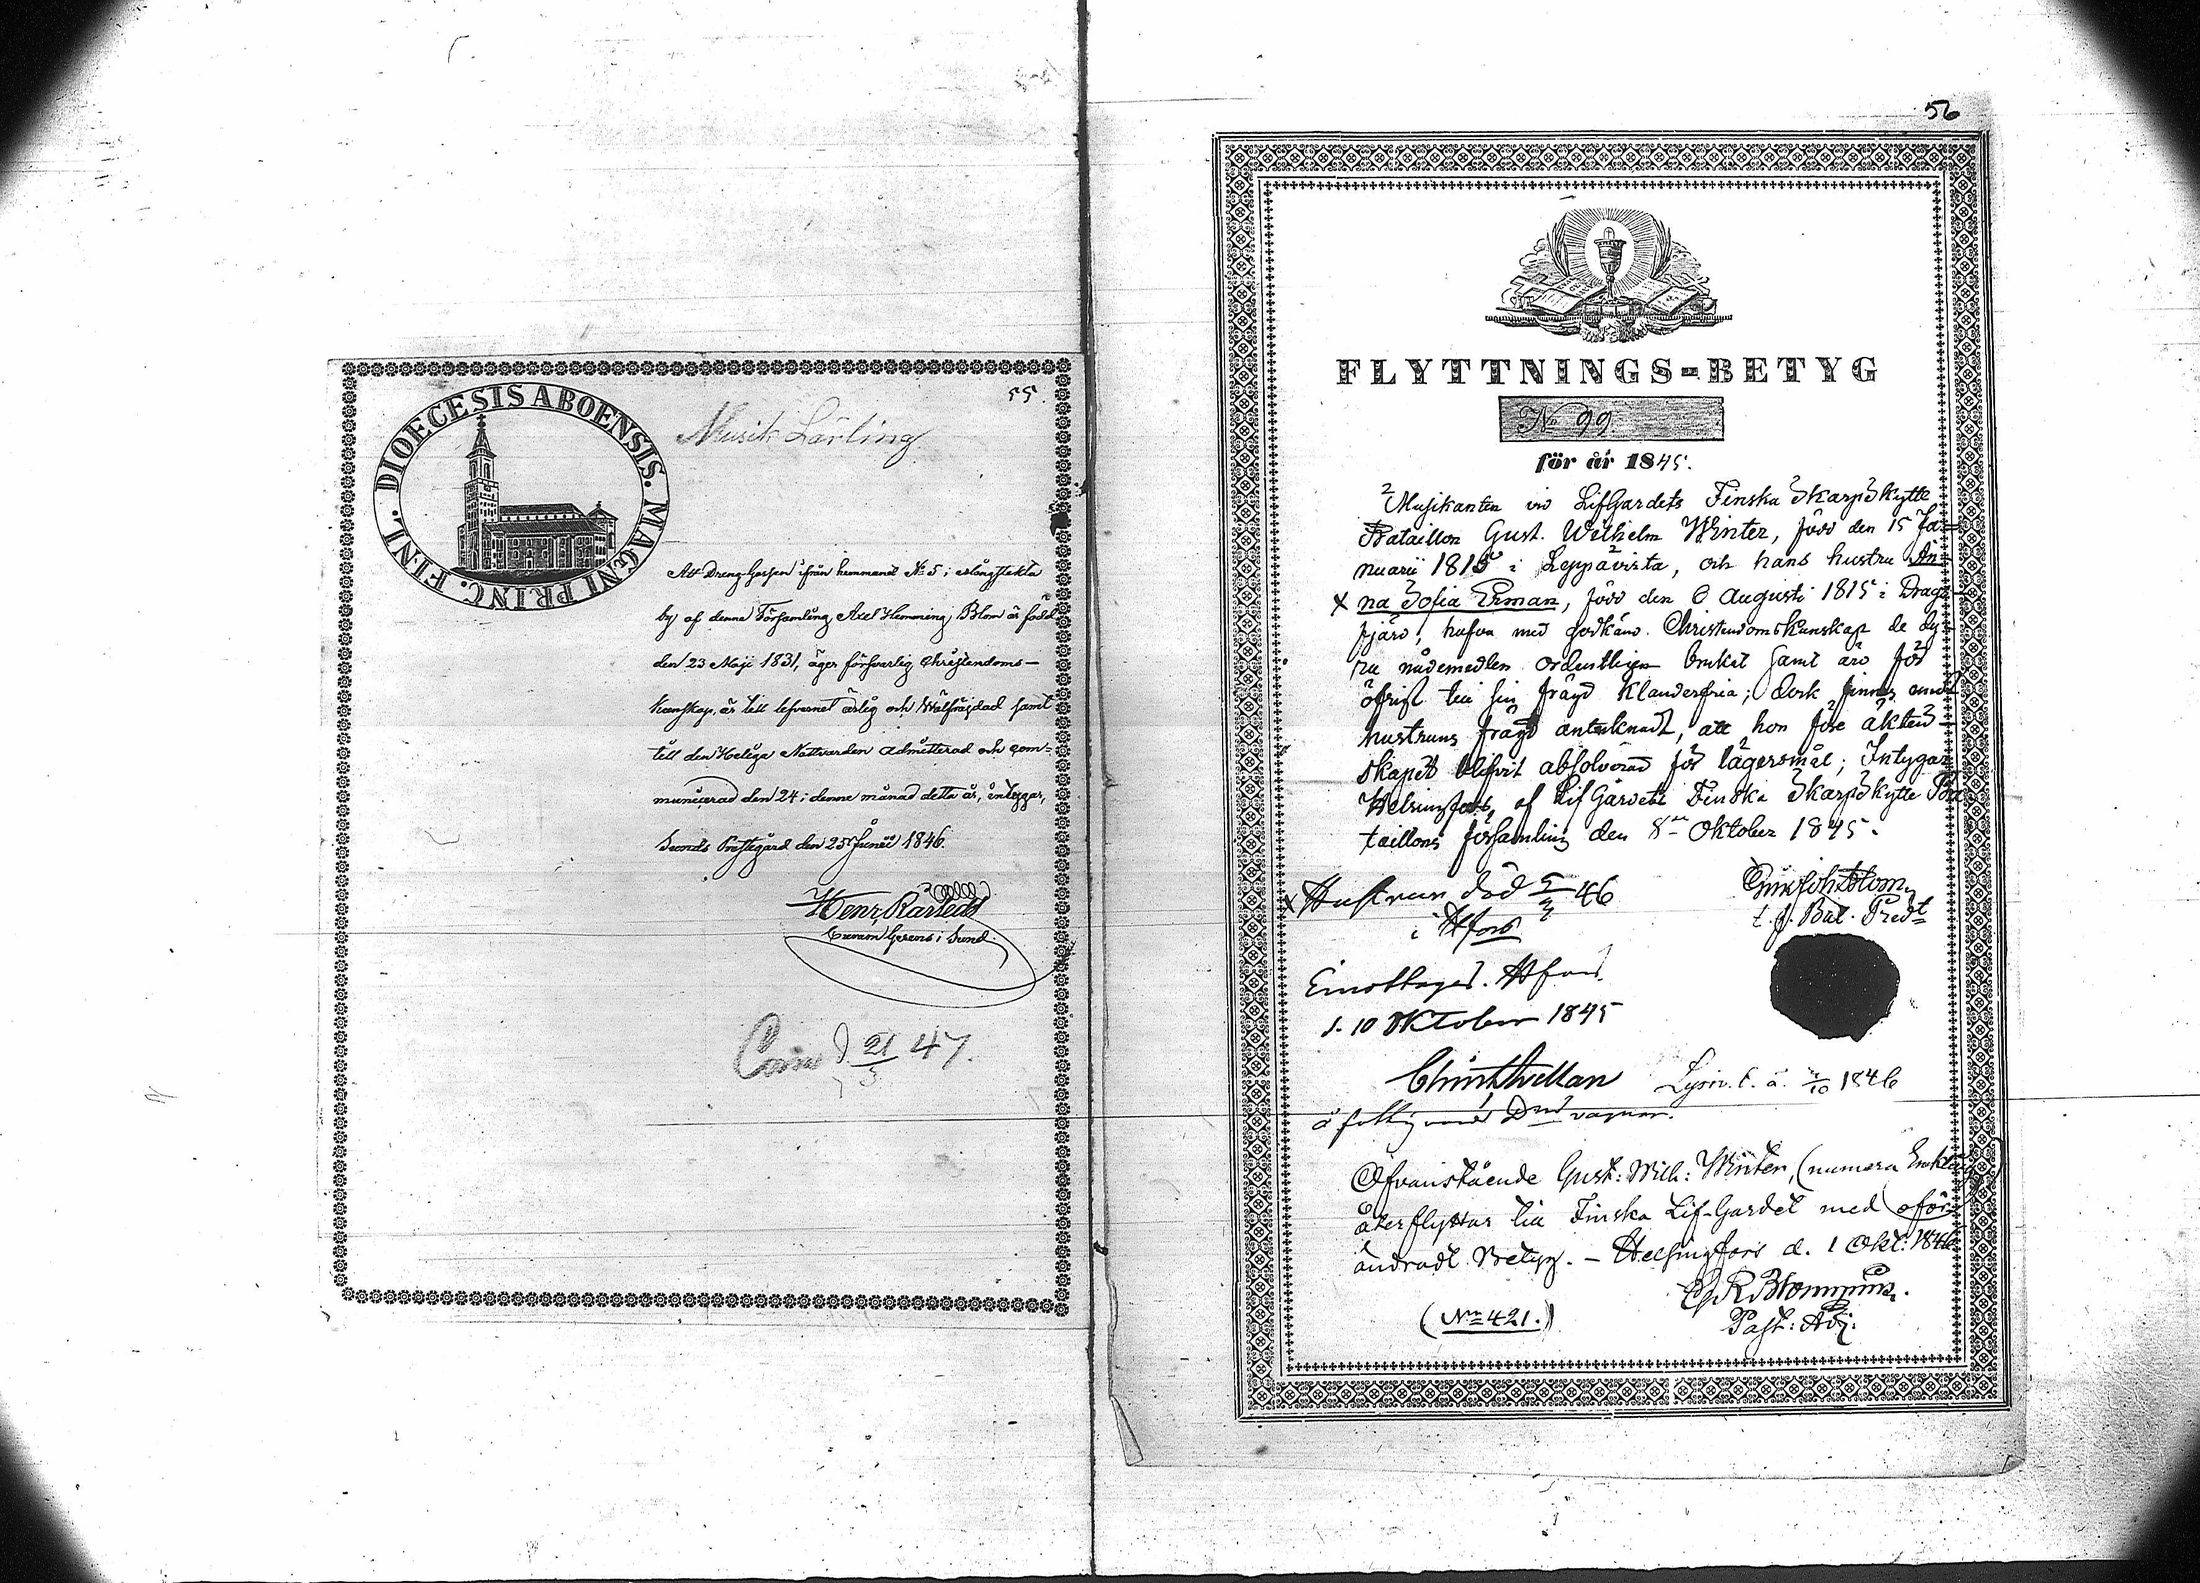 55.
DIOECESIS ABOENSIS. MAGNI PRINC. FINL.
Musik Lärling
Att Dreng Gossen ifrån hemmanet № 5 i Mångstekta
by af denne Församling Axel Hemming Blom är född
den 23 Maji 1831, äger försvarlig Christendoms-
kunskap, är till lefvernet ärlig och Wälfräjdad samt
till den Heliga Nattvarden admitterad och com-
municerad den 24 i denne månad detta år, intygar,
Sunds Prestgård den 25 Junii 1846.
Henr.
i Sund.
d 21/3 47.
56
FLYTTNINGS-BETYG
№ 99
för år 1845.
Musikanten vid LifGardets Finska Skarpskytte
Bataillon Gust. Wilhelm Winter, född den 15 Ja-
nuarii 1815 i Leppävirta, och hans hustru An-
x na Sofia Erman, född den 6 Augusti 1815 i Drags-
fjärd, hafva med godkänd Christendomskunskap de dy-
ra nådemedlen ordentligen brukat samt äro för
öfrigt till sin fräjd klanderfria; dock finnes vid
hustruns fräjd antecknadt, att hon före äkten-
skapet blifvit absolverad för lägersmål; Intygar
Helsingfors, af LifGardets Finska Skarpskytte Ba-
taillons församling den 8 Oktober 1845.
t. f. Bat. Pred
x Hustrun död 5/3 46
i Hfors
Emottaget. Hfors
d. 10 Oktober 1845
1846
Ofvanstående Gust: Wilh: Winter, (numera Enkling)
återflyttar till Finska Lif-Gardet med oför-
ändradt betyg. – Helsingfors d. 1 Okt: 1846
Blommila.
Past: Adj:
(№ 421.)